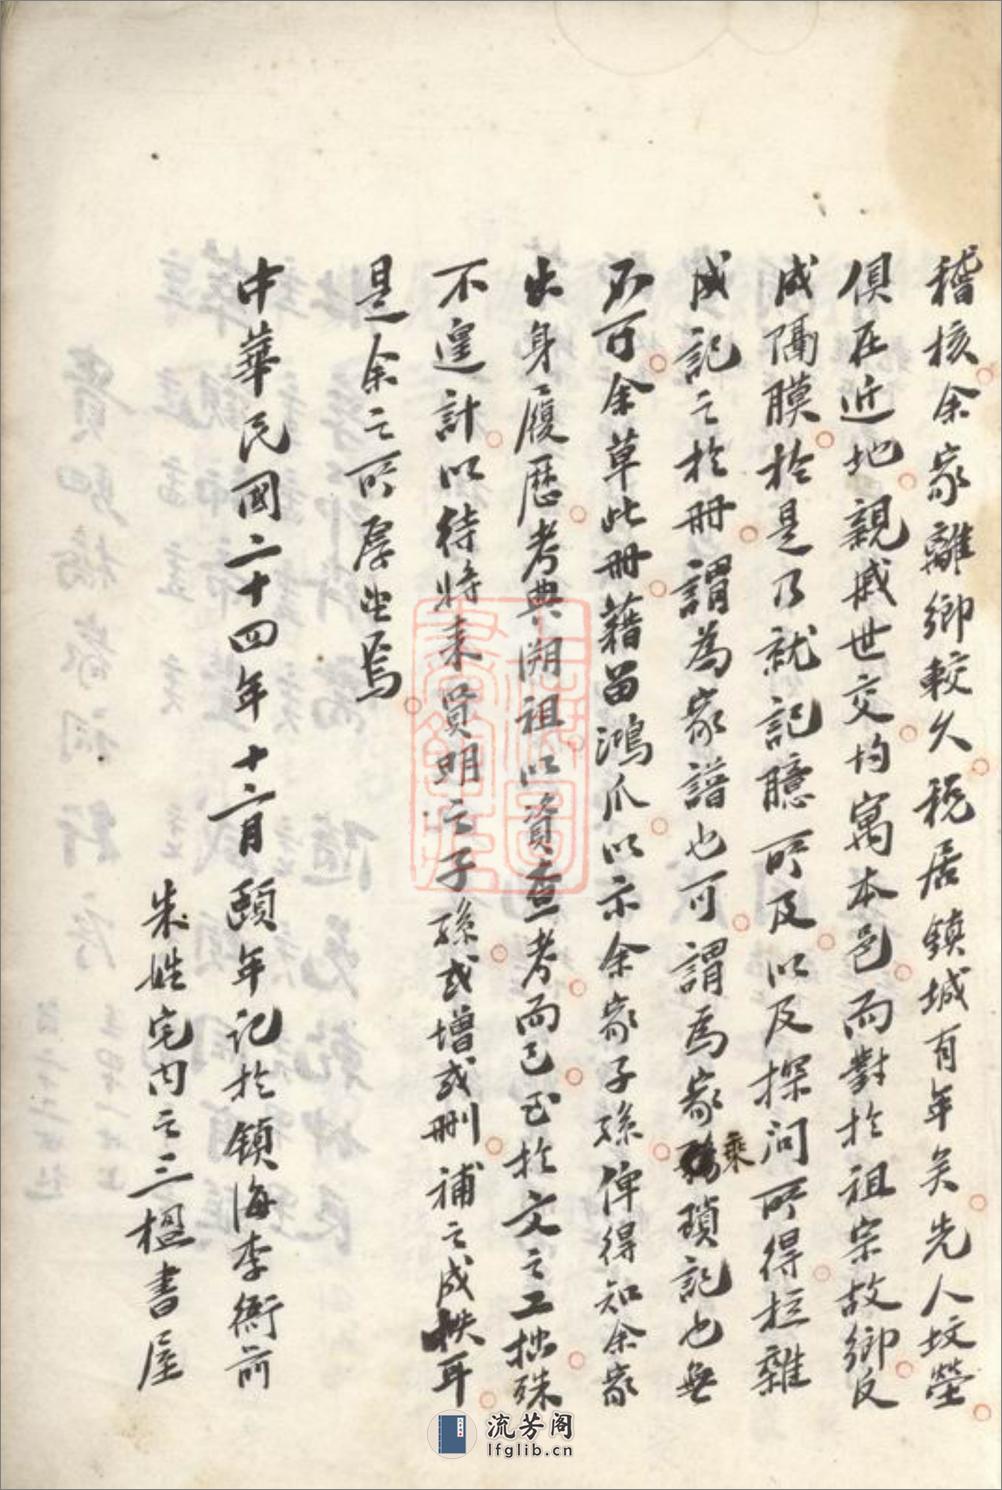 稽核余家離鄉較久稅居鎮城有年矣先人坟塋
俱在近地親戚世交均寓本邑而對於祖宗故鄉反
成隔膜於是乃就記臆所及以及探问所得拉雜
成記之於册謂為家譜也可謂爲家乘瑣記也無
不可余草此册藉留鴻爪以示余家子孫俾得知余家
出身履歷考典溯祖以資查考而已至於文之工拙殊
不遑計以待將来賢明之子孫或增或删補之成帙耳
是余之所厚望焉
中華民國二十四年十二月頤年記於鎮海李衙前
朱姓宅内之三楹書屋
流芳阁
lfglib.cn